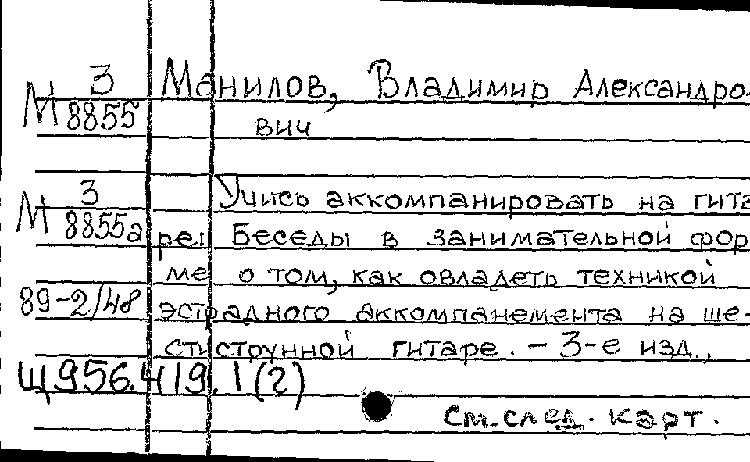 М 3/8855 Манилов, Владимир Александро-
вич
М 3/8855а Учись аккомпанировать на гита-
ре: Беседы в занимательной фор-
ме о том, как овладеть техникой
89-2/48 эстрадного аккомпанемента на ше-
стиструнной гитаре. - 3-е изд.,
Щ956.419.1(2)
См. след. карт.